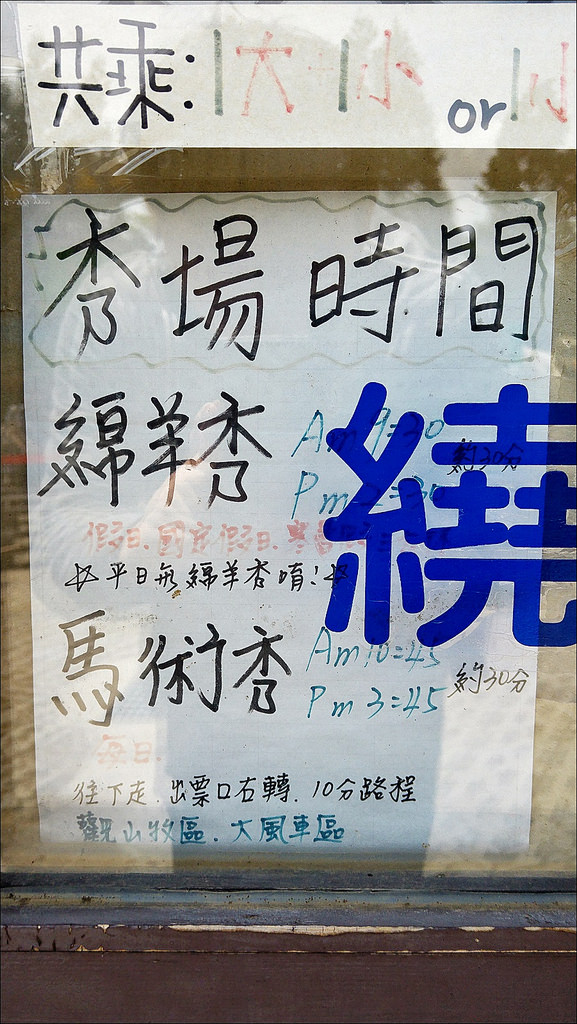 共乘: 1大 1小 or 1小
秀場 時間
綿羊秀 Am 9:30 約30分
Pm 2:30
繞
假日.國定假日.寒暑
平日無綿羊秀唷!
馬術秀 Am 10:45
Pm 3:45 約30分
每日.
往下走.出票口右轉.10分路程
觀山牧區.大風車區